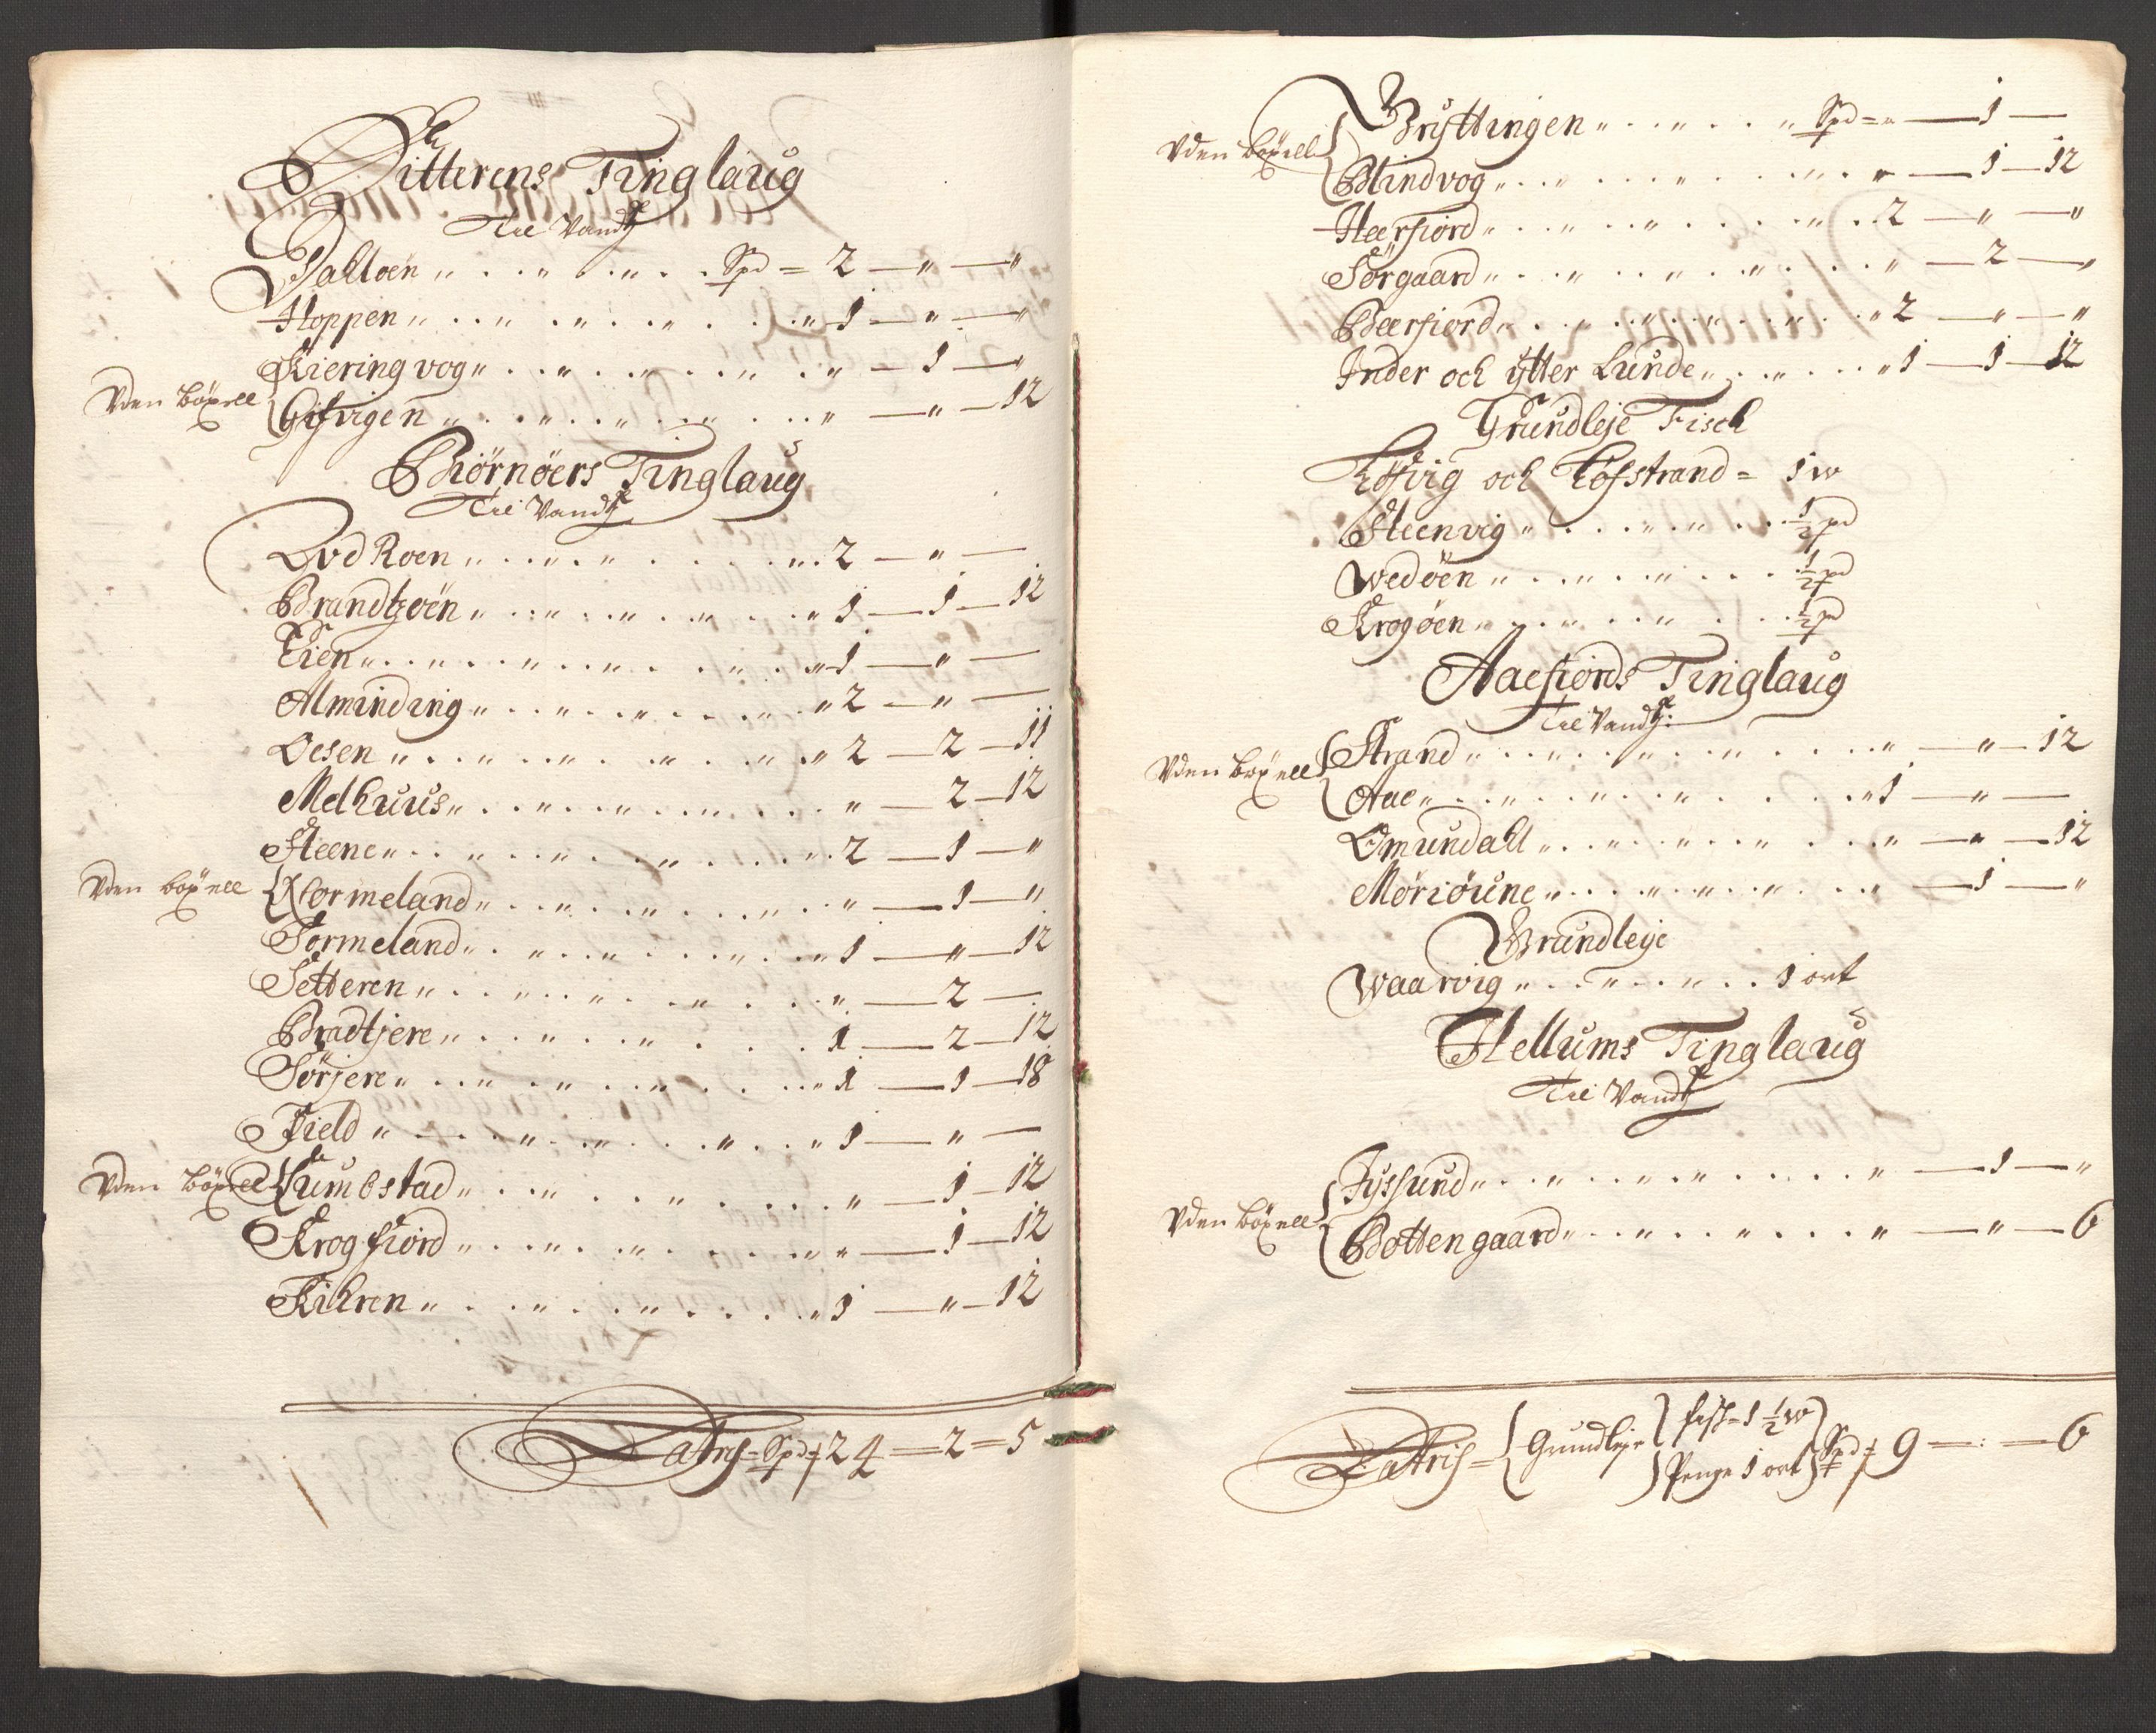 Hitterens Tinglaug
Til Vandz
Dalloen „ . . „ . „ . . Spd = 2 — „ — „
Hoppen „ . . „ . „ . . „ . . „ 1 — „ — „
Kieringvog „ . . „ . . „ . . „ . „ — 1 — „
Uden böxell { Gisvigen „ . . „ . . „ . . „ . . „ — „ — 12
Biörnöers Tinglaug
Til Vandz
Ovd Roen „ . . „ . „ . . . „ . 2 — „ —
Brandtzöen „ . . „ . . „ . . „ . . „ 1 — 1 — 12
Eien „ . . „ . . „ . . „ . . „ 1 — „ —
Alminding „ . . „ . . „ . . . „ 2 — „ —
Oesen „ . . „ . . „ . . „ . „ 2 — 2 — 11
Melhuus „ . . „ . . „ . . „ . . „ — 2 — 12
Steene „ . . „ . . „ . . „ . . „ 2 — 1 — „
Uden böxell { Normeland „ . . „ . . „ . . „ . . „ — 1 — „
Sormeland „ . . „ . . „ . . „ . . „ 1 — „ — 12
Setteren „ . . „ . . „ . . „ . . „ — 2 —
Bradtjere „ . . „ . . „ . . . 1 — 2 — 12
Sörjere „ . . „ . . „ . . „ . . „ 1 — 1 — 18
Field „ . . . „ . . „ . . „ . . „ 1 — „ —
Uden böxell { Humbstad „ . . „ . . „ . . . „ — 1 — 12
Krogfiord „ . . „ . . „ . . . „ „ — 1 — 12
Kihren „ . . „ . . „ . . . „ 1 — „ — 12
Lateris = Spd 24 — 2 = 5
Gryttingen „ . . „ . . „ Spd = „ — 1 —
Uden böxell { Blindvog „ . . „ . . . „ . . . „ . „ — 1 — 12
Heerfiord „ . . „ . . „ . . . „ . 2 — „ — „
Sörgaard „ . . „ . . „ . . „ . . „ — 2 — „
Beerfiord „ . . „ . . „ . . „ . . „ 2 — „ — „
Inder och ytter Lunde „ . . „ . . . „ 1 — 1 — 12
Grundleje Fisch
Höfvig och Höfstrand = 1 w
Steenvig „ . . . „ . „ . . . ½ pd
Wedöen „ . . „ . . „ . . . ½ pd
Krogöen „ . . „ . . „ . . . ½ pd
Aaefiords Tinglaug
Til Vandz:
Uden böxell { Strand „ . . „ . . „ . . „ . . . „ — „ — 12
Aae „ . . „ . . „ . . „ . . . „ 1 — „ —
Omundall „ . . „ . . „ . . „ . . „ — „ — 12
Møriöune „ . . „ . . „ . . „ . . „ — 1 — „
Grundleye
Waarvig „ . . „ . . „ . . 1 ort
Hellums Tinglaug
Til Vandz
Jyssund „ . . „ . . „ . . „ . . . „ — 1 — „
Uden böxell { Bottengaard „ . . „ . . „ . . . „ — „ — 6
Lateris = { Grundleje } fisk = 1 ½ w } Penge 1 ort } Spd 9 — : — 6